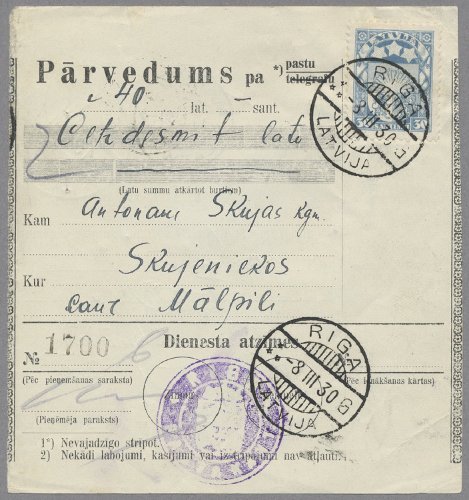 Pārvedums pa *) pastu
telegrafu
40
lat. sant.
Četrdesmit latu
(Latu summu atkārtot burtiem)
Kam Antonam Skujas kgm.
Kur Skujeniekos
caur Mālpili
Dienesta atzīmes
№ 1700
(Pēc pieņemšanas saraksta)
(Pieņēmēja paraksts)
1*) Nevajadzīgo strīpot.
2) Nekādi labojumi, kasījumi vai iztrīpojumi nav atļauti.
RIGA
8 III 30
LATVIJA
B
RIGA
-8 III 30
LATVIJA
B